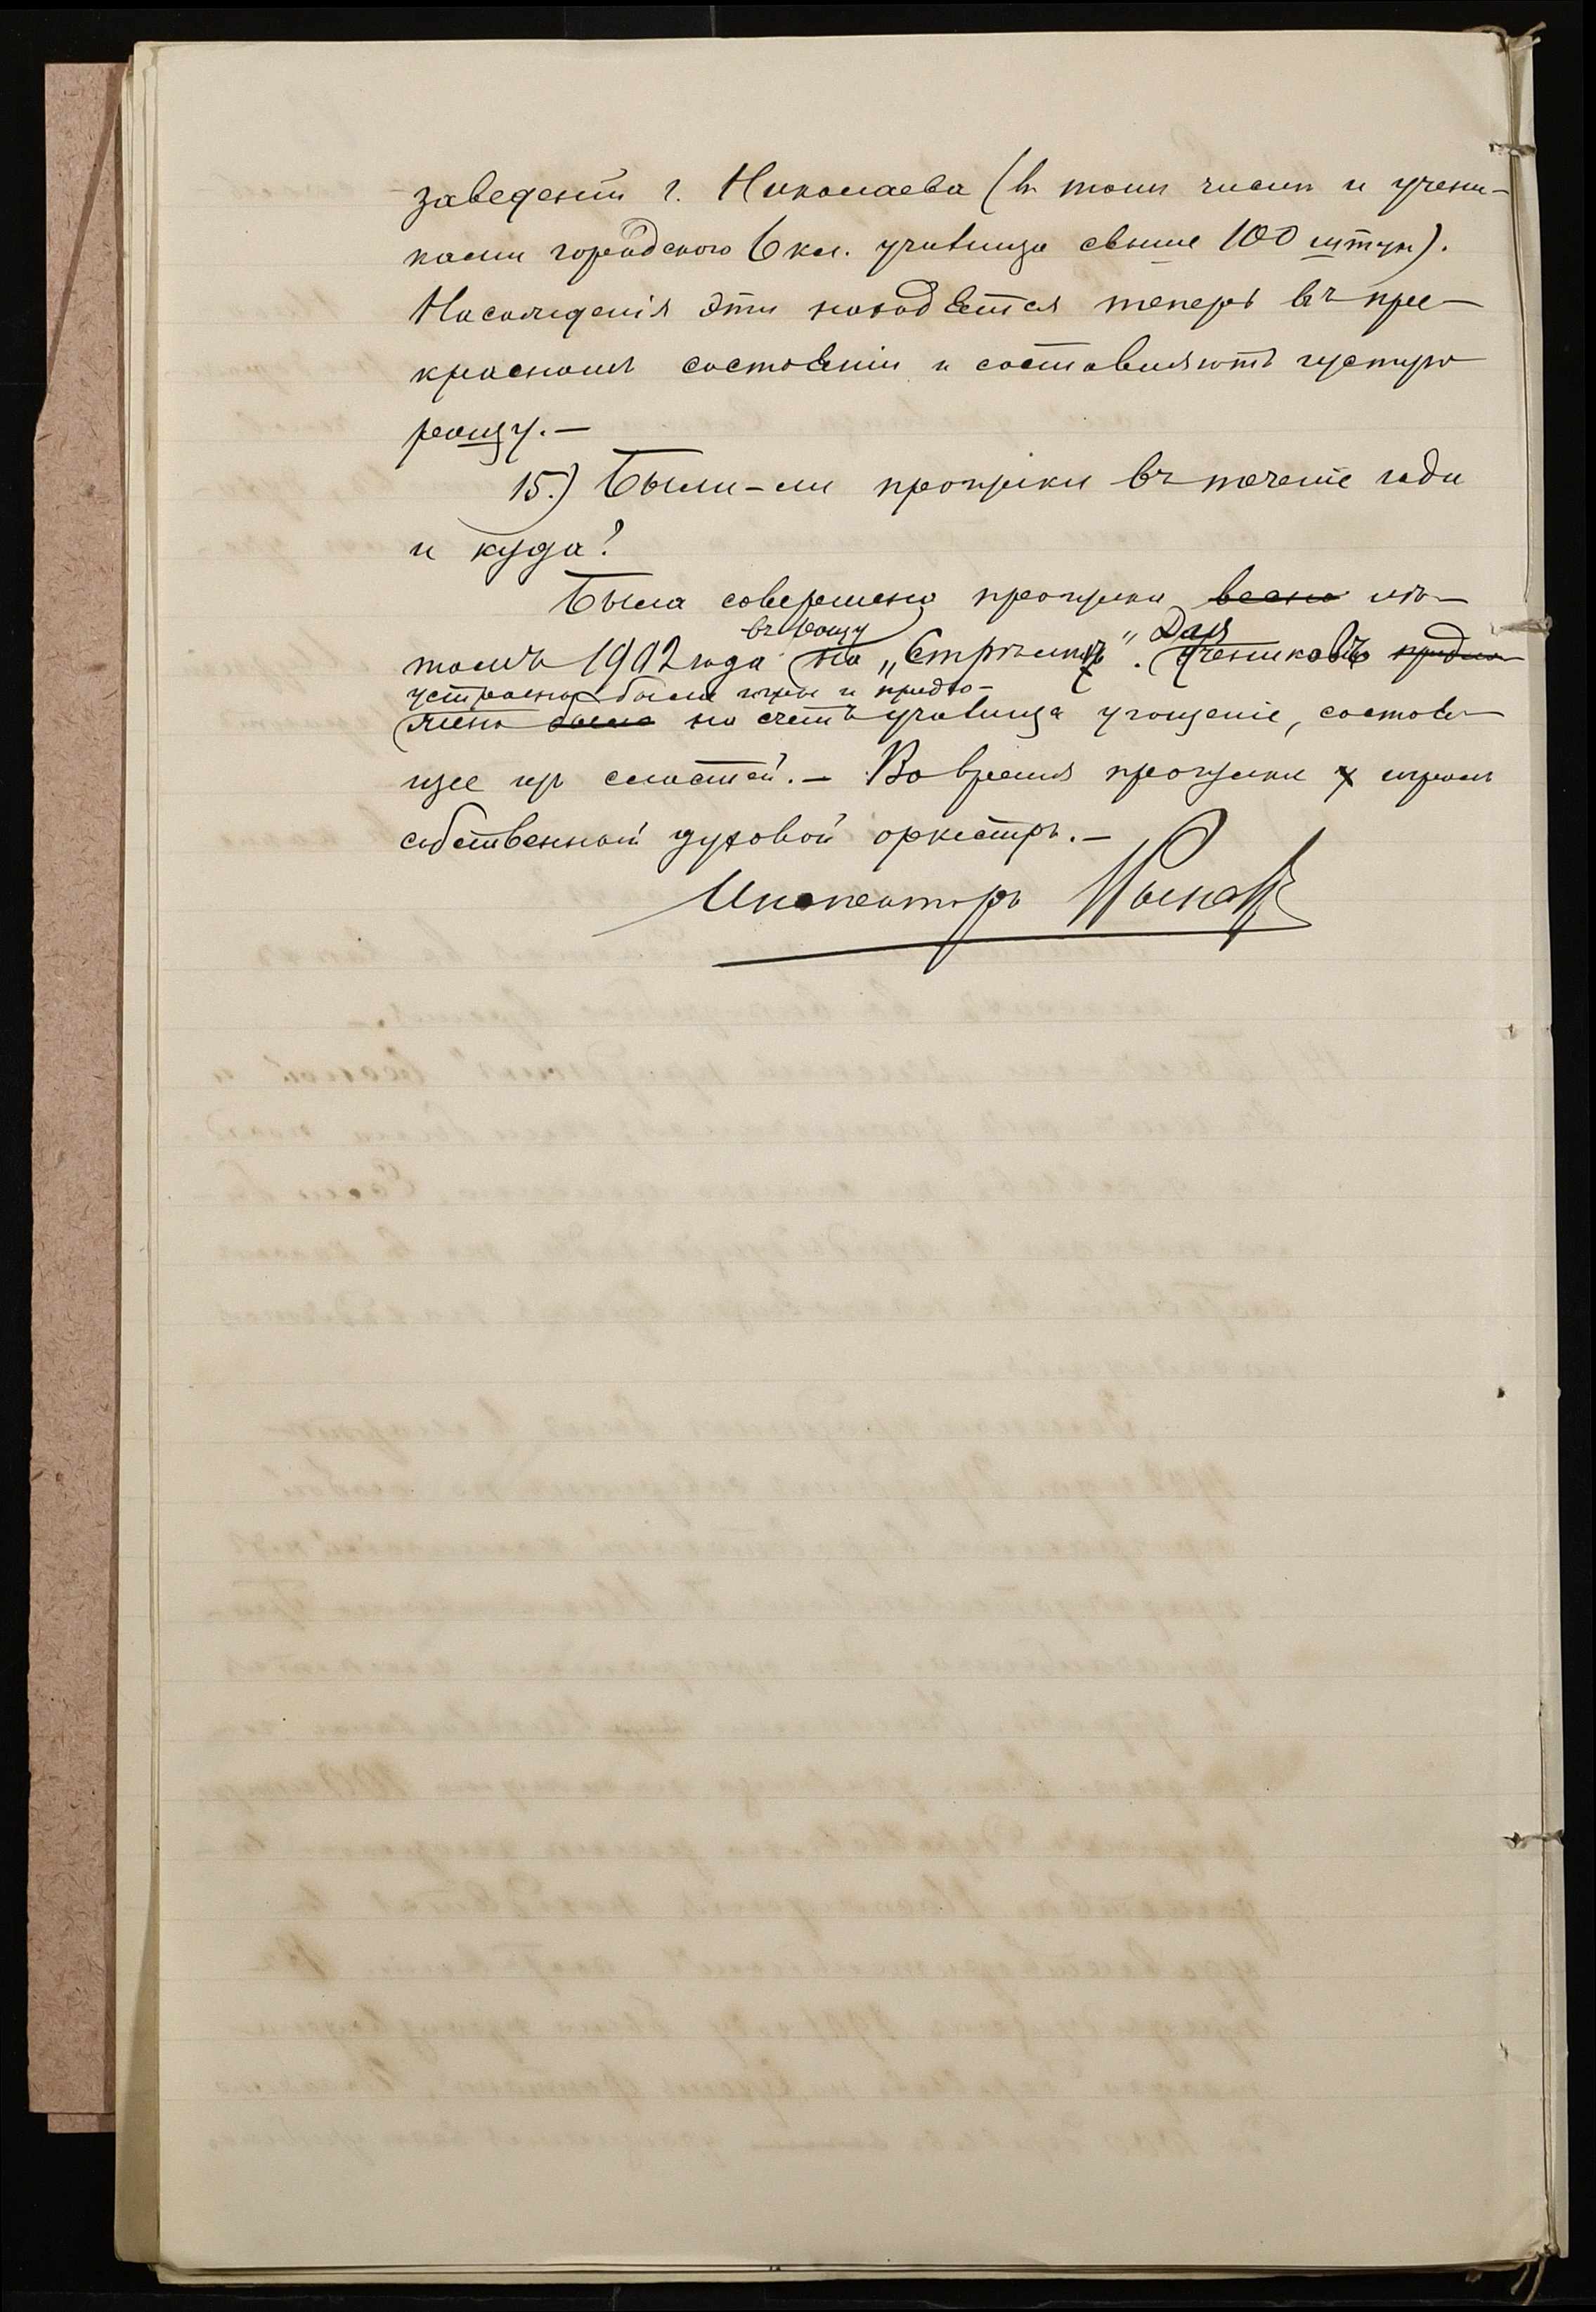 заведеній г. Николаева (въ томъ числѣ и учени-
ками городского 6 кл. училища свыше 100 штук).
Насажденія эти находятся теперь въ пре-
красномъ состояніи и составляютъ густую
рощу.—
15.) Были-ли прогулки въ теченіе года
и куда?
Была совершена прогулка весно лѣ-
въ рощу Для
томъ 1902 года на „Стрѣлку". учениковъ предло-
устроены были игры и предло-
жено было на счетъ училища угощеніе, состоя-
щее изъ сластей.— Во время прогулки игралъ
собственный духовой оркестръ.—
Инспекторъ